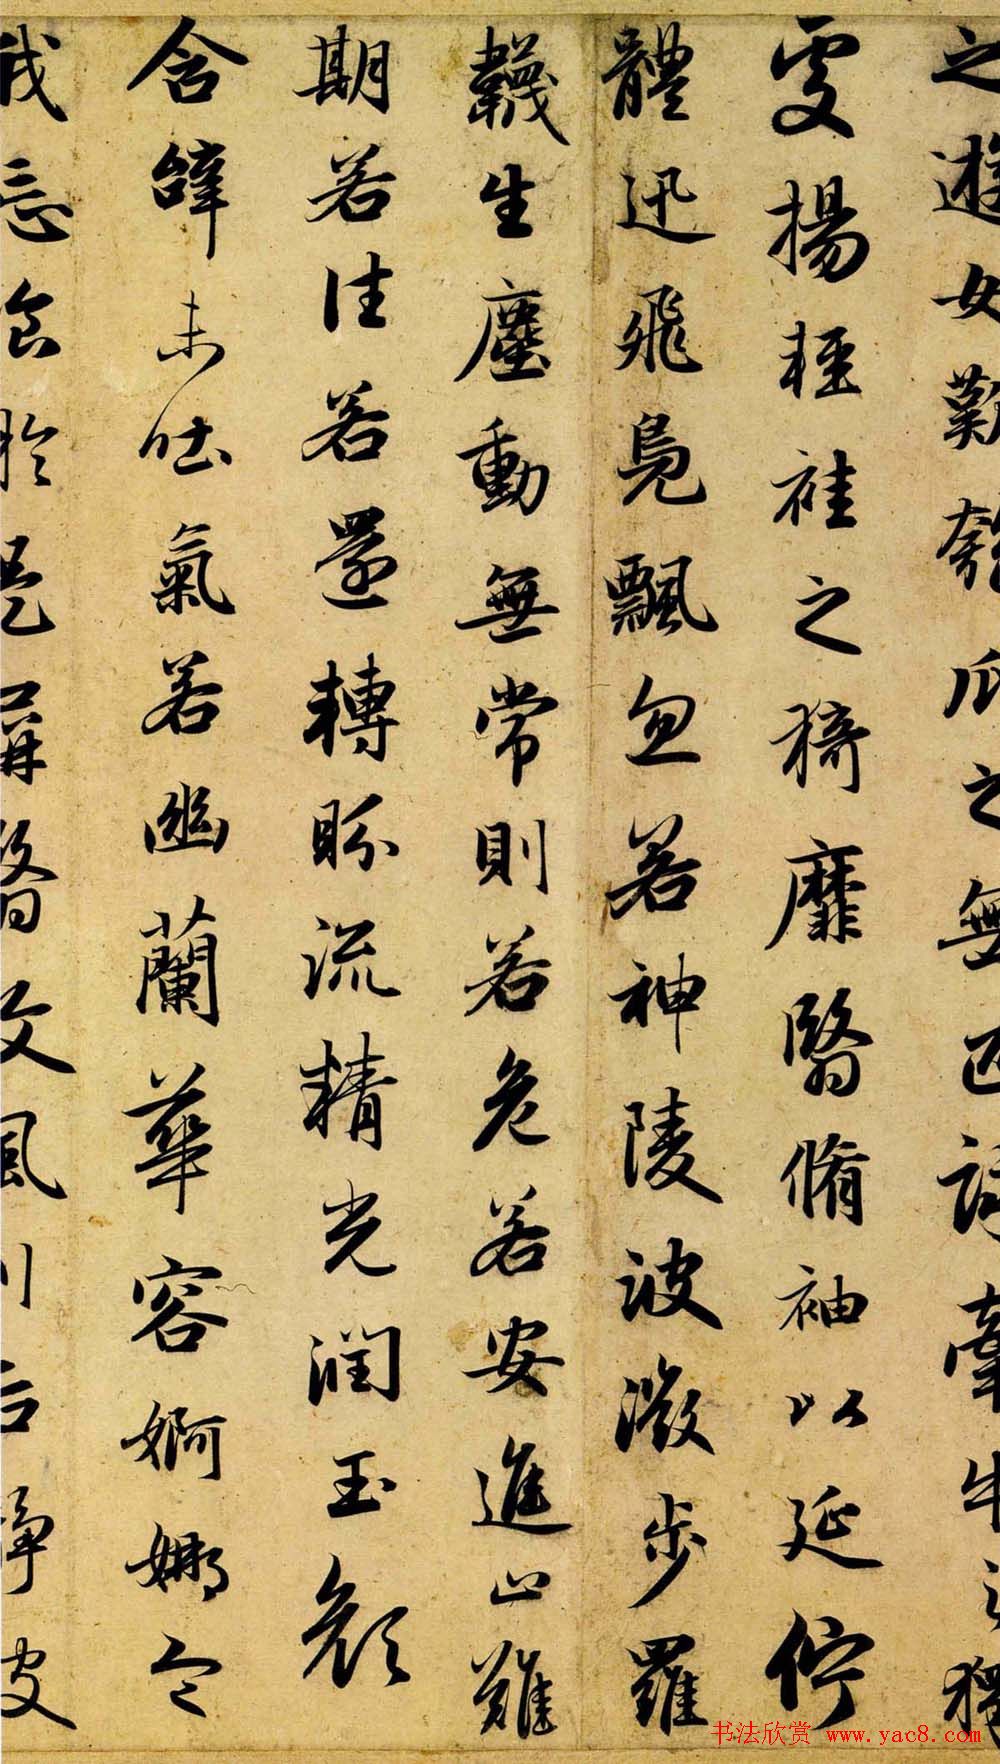 之遊女歎匏瓜之無匹詠牽牛之獨
處揚輕袿之猗靡翳脩袖以延佇
體迅飛鳧飄忽若神陵波微步羅
韈生塵動無常則若危若安進止難
期若往若還轉盼流精光潤玉顏
含辭未吐氣若幽蘭華容婀娜令
我忘食於是屏翳收風川后靜波
书法欣赏 www.yac8.com